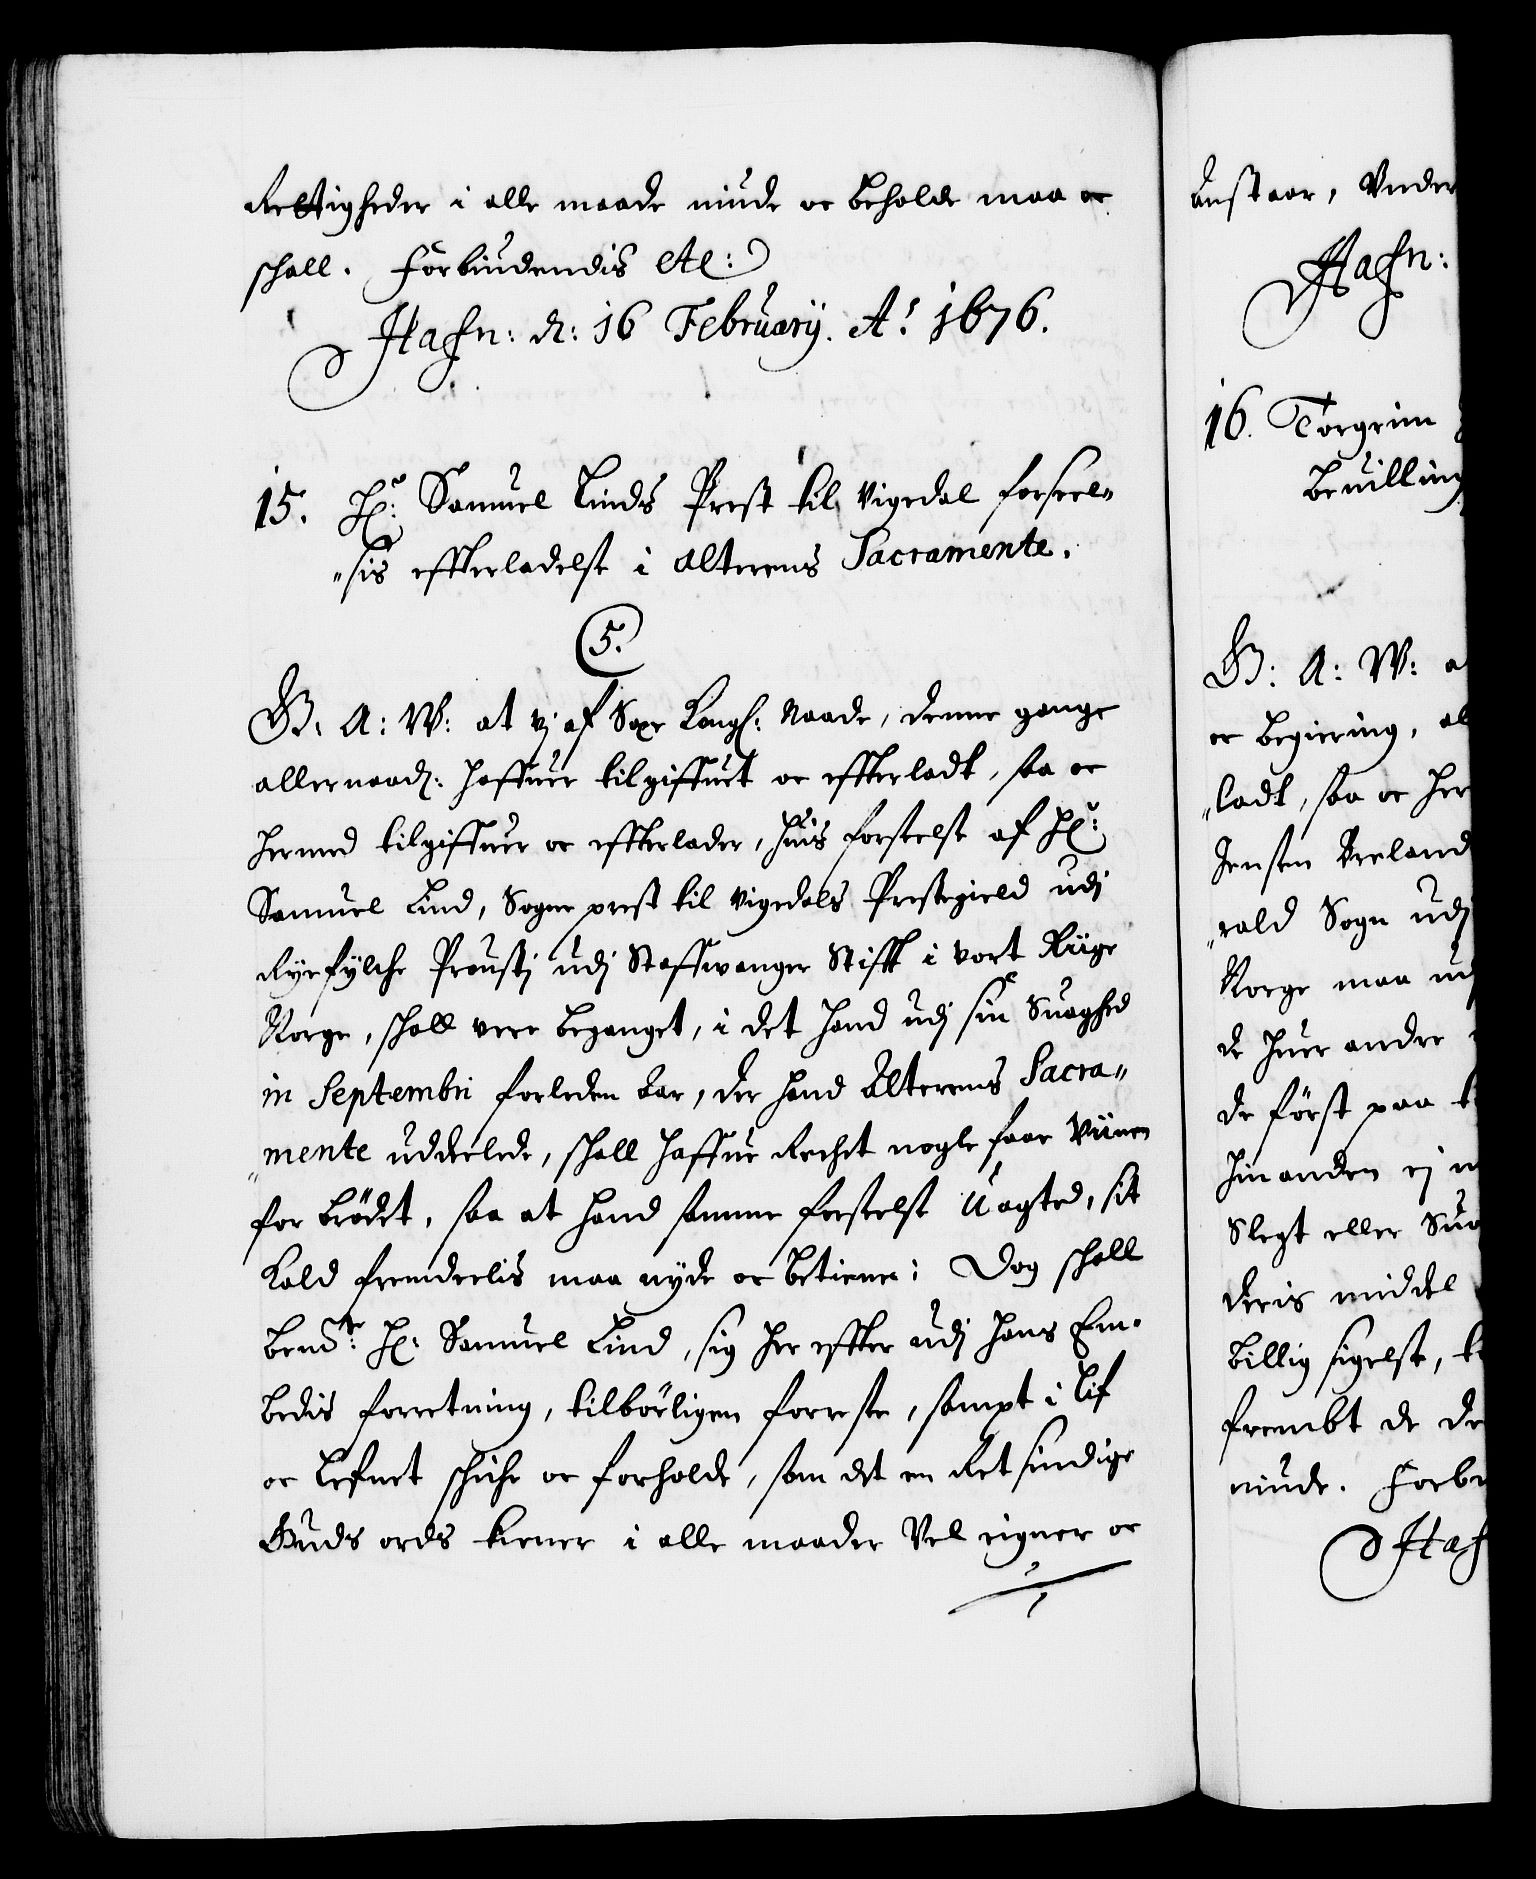 Rettigheder i alle maade niude oc beholde maa oc
schall. Forbiudendis etc:
Hafn: d: 16 February. Aº 1676.
15. Hr: Samuel Linds Prest til Vigedal forseel-
"sis efterladelse i Alterens Sacramente.
5.
G. A: W: at vj af Sær Kongl: Naade, denne gange
allernaad: haffuer tilgiffuet oc efterladt, saa oc
hermed tilgiffuer oc efterlader, huis forseelse af Hr:
Samuel Lind, Sogne prest til Vigedals Prestegield udj
Ryefylche Proustj udj Staffvanger Stift i vort Riige
Norge, schall vere beganget, i det hand udj sin Suaghed
in Septembri forleden Aar, der hand Alterens Sacra"
"mente uddeelede, schall haffue Rechet nogle faae Viinen
for brödet, saa at hand samme forseelse Uagted, sit
Kald fremdeelis maa nyde oc betiene: Dog schall
bemte: Hr: Samuel Lind, sig her efter udj hans Em-
bedis forretning, tilbörligen forreste, sampt i Lif
oc Lefnet schiche oc forholde, som det en Retsindige
Guds ords tiener i alle maader Vel eigner oc
Anstaar, Under
Hafn:
16. Torgrim
Bevilling
G: A: W: a
oc begiering, al
"ladt, saa oc her
Jensen Vreeland
"rald Sogn udj
Norge maa udj
de huer andre
de först paa t
hinanden ej m
Slegt eller Sua
deris middel
billig sigelse, k
frembt de de
niude. Forbi
Haf